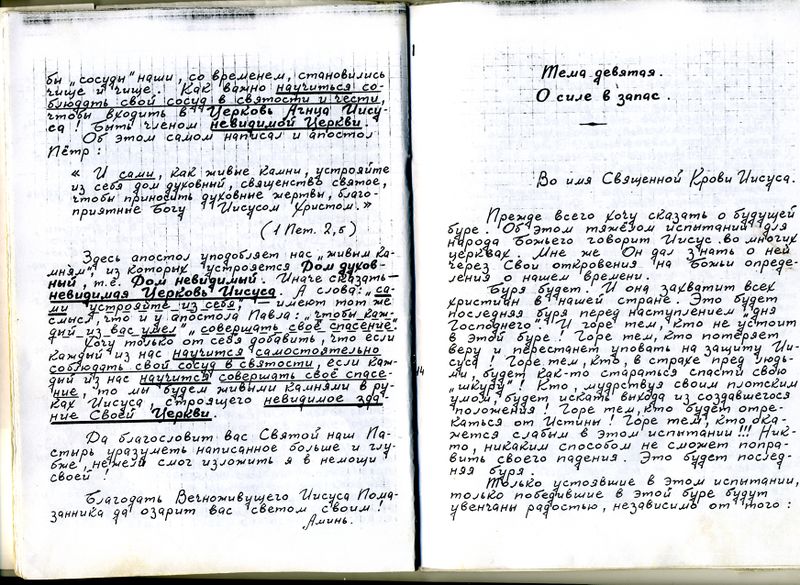 бы „сосуды" наши, со временем, становились
чище и чище. Как важно научиться со-
блюдать свой сосуд в святости и чести,
чтобы входить в Церковь Агнца Иису-
са! Быть членом невидимой Церкви.
Об этом самом написал и апостол
Пётр:
« И сами, как живые камни, устрояйте
из себя дом духовный, священство святое,
чтобы приносить духовные жертвы, благо-
приятные Богу Иисусом Христом.»
(1 Пет. 2,5)
Здесь апостол уподобляет нас „живым ка-
мням" из которых устрояется Дом духов-
ный, т.е. Дом невидимый. Иначе сказать —
невидимая Церковь Иисуса. А слова: „са-
ми устрояйте из себя" — имеют тот же
смысл, что и у апостола Павла: „чтобы каж-
дый из вас умел" „совершать своё спасение."
Хочу только от себя добавить, что если
каждый из нас научится самостоятельно
соблюдать свой сосуд в святости, если каж-
дый из нас научится совершать своё спасе-
ние, то мы будем живыми камнями в ру-
ках Иисуса, строящего невидимое зда-
ние Своей Церкви.
Да благословит вас Святой наш Па-
стырь уразуметь написанное больше и глу-
бже, нежели смог изложить я в немощи
своей!
Благодать Вечноживущего Иисуса Пома-
занника да озарит вас светом своим!
Аминь.
Тема девятая.
О силе в запас.
Во имя Священной Крови Иисуса.
Прежде всего хочу сказать о будущей
буре. Об этом тяжёлом испытании для
народа Божьего говорит Иисус во многих
церквах. Мне же Он дал знать о ней
через Свои откровения на Божьи опреде-
ления о нашем времени.
Буря будет. И она захватит всех
христиан в нашей стране. Это будет
последняя буря перед наступлением „дня
Господнего". И горе тем, кто не устоит
в этой буре! Горе тем, кто потеряет
веру и перестанет уповать на защиту Ии-
суса! Горе тем, кто, в страхе пред людь-
ми, будет как-то стараться спасти свою
„шкуру"! Кто, мудрствуя своим плотским
умом, будет искать выхода из создавшегося
положения! Горе тем, кто будет отре-
каться от Истины! Горе тем, кто ока-
жется слабым в этом испытании!!! Ник-
то, никаким способом не сможет попра-
вить своего падения. Это будет послед-
няя буря.
Только устоявшие в этом испытании,
только победившие в этой буре будут
увенчаны радостью, независимо от того: